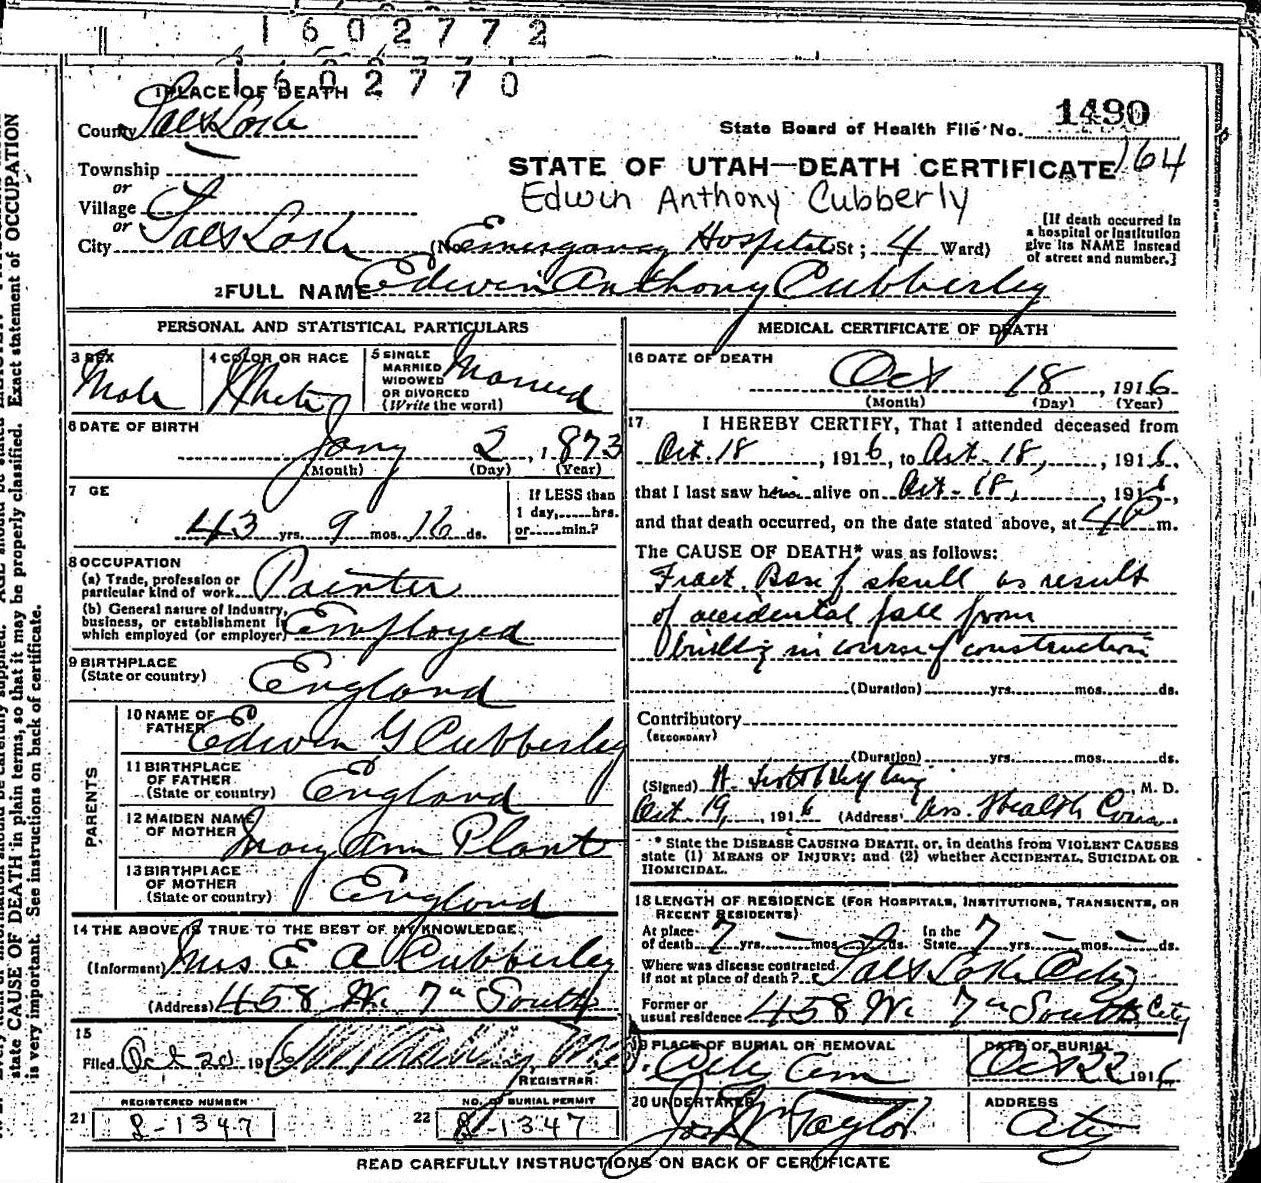 1602772
1602770
1 PLACE OF DEATH
County Salt Lake
State Board of Health File No. 1490
164
Township
or
Village
or
City Salt Lake
STATE OF UTAH—DEATH CERTIFICATE
Edwin Anthony Cubberly
(No. Emergency Hospital St; 4 Ward)
[If death occurred in
a hospital or institution
give its NAME instead
of street and number.]
2 FULL NAME Edwin Anthony Cubberley
PERSONAL AND STATISTICAL PARTICULARS
3 SEX
Male
4 COLOR OR RACE
White
5 SINGLE
MARRIED
WIDOWED
OR DIVORCED
(Write the word)
Married
6 DATE OF BIRTH
Jany 2, 1873
(Month) (Day) (Year)
7 GE
43 yrs. 9 mos. 16 ds.
If LESS than
1 day,......hrs.
or......min.?
8 OCCUPATION
(a) Trade, profession or
particular kind of work Painter
(b) General nature of industry,
business, or establishment i
which employed (or employer) Employed
9 BIRTHPLACE
(State or country) England
PARENTS
10 NAME OF
FATHER Edwin G Cubberley
11 BIRTHPLACE
OF FATHER
(State or country) England
12 MAIDEN NAME
OF MOTHER Mary Ann Plant
13 BIRTHPLACE
OF MOTHER
(State or country) England
14 THE ABOVE IS TRUE TO THE BEST OF MY KNOWLEDGE
(Informant) Mrs E A Cubberley
(Address) 458 W. 7th South
15
Filed Oct 20 1916
REGISTRAR
REGISTERED NUMBER
21 8-1347
NO. OF BURIAL PERMIT
22 8-1347
MEDICAL CERTIFICATE OF DEATH
16 DATE OF DEATH
Oct 18, 1916
(Month) (Day) (Year)
17 I HEREBY CERTIFY, That I attended deceased from
Oct. 18, 1916, to Oct. 18, 1916,
that I last saw him alive on Oct - 18, 1916,
and that death occurred, on the date stated above, at 4 P m.
The CAUSE OF DEATH* was as follows:
Fract. Base of skull as result
of accidental fall from
building in course of construction
(Duration) yrs. mos. ds.
Contributory
(SECONDARY)
(Duration) yrs. mos. ds.
(Signed) M. D.
Oct 19, 1916 (Address)
* State the DISEASE CAUSING DEATH, or, in deaths from VIOLENT CAUSES
state (1) MEANS OF INJURY; and (2) whether ACCIDENTAL, SUICIDAL OR
HOMICIDAL.
18 LENGTH OF RESIDENCE (FOR HOSPITALS, INSTITUTIONS, TRANSIENTS, OR
RECENT RESIDENTS)
At place
of death 7 yrs. — mos. — ds.
In the
State 7 yrs. — mos. — ds.
Where was disease contracted
if not at place of death? Salt Lake City
Former or
usual residence 458 W. 7th South City
19 PLACE OF BURIAL OR REMOVAL
City Cem
DATE OF BURIAL
Oct 22 1916
20 UNDERTAKER
Jos Wm Taylor
ADDRESS
City
READ CAREFULLY INSTRUCTIONS ON BACK OF CERTIFICATE
state CAUSE OF DEATH in plain terms, so that it may be properly classified. Exact statement of OCCUPATION
is very important. See instructions on back of certificate.